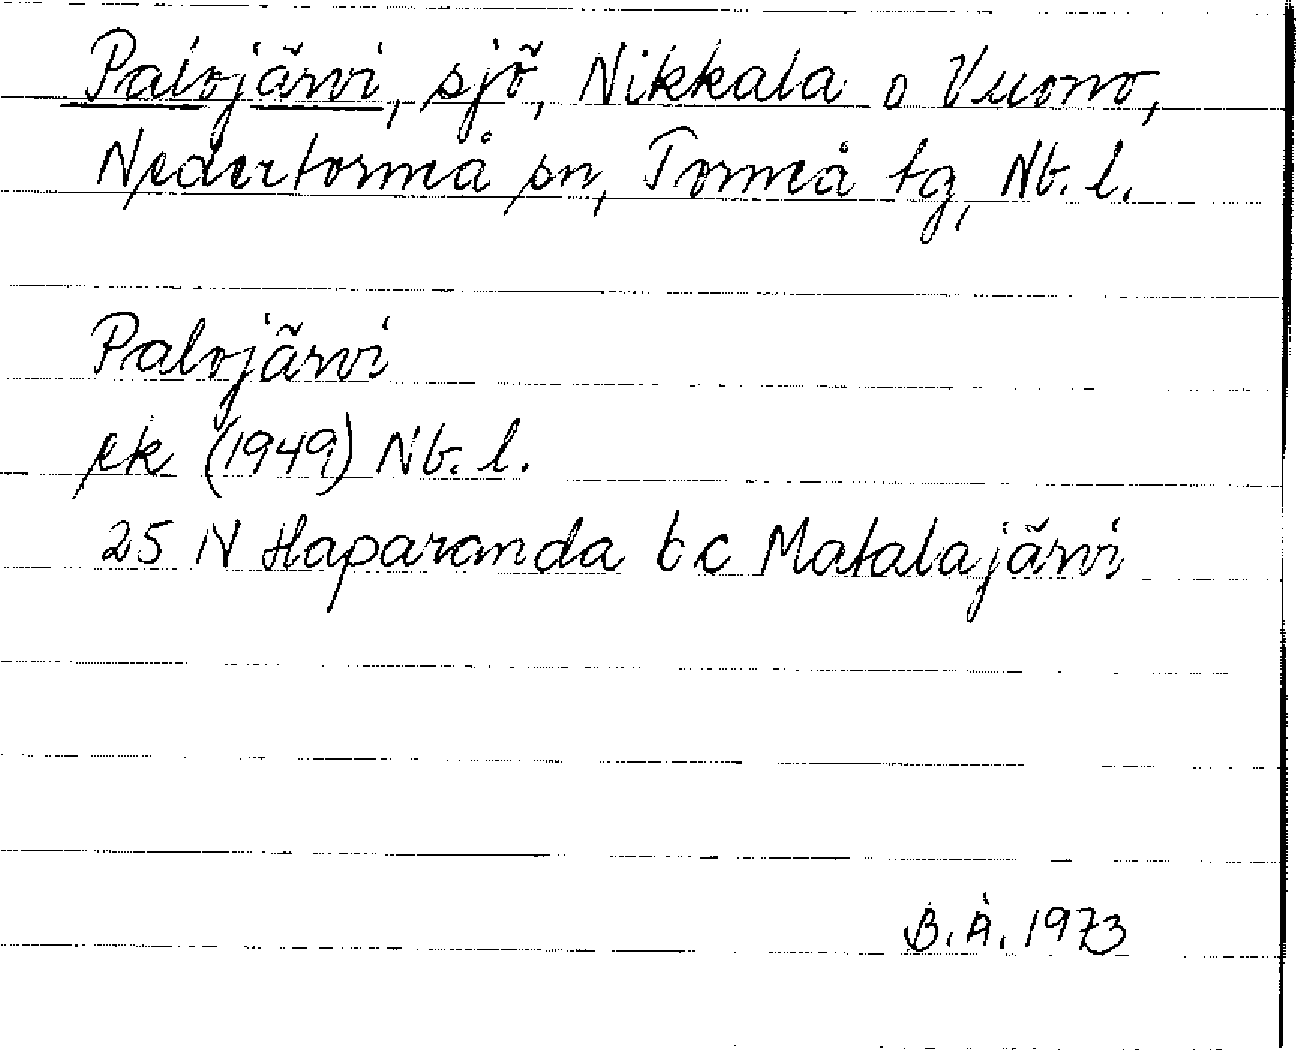 Palojärvi, sjö, Nikkala o Vuono,
Nedertorneå sn, Torneå tg, Nb. l.
Palojärvi
ek (1949) Nb. l.
25 N Haparanda b c Matalajärvi
B. Å. 1973